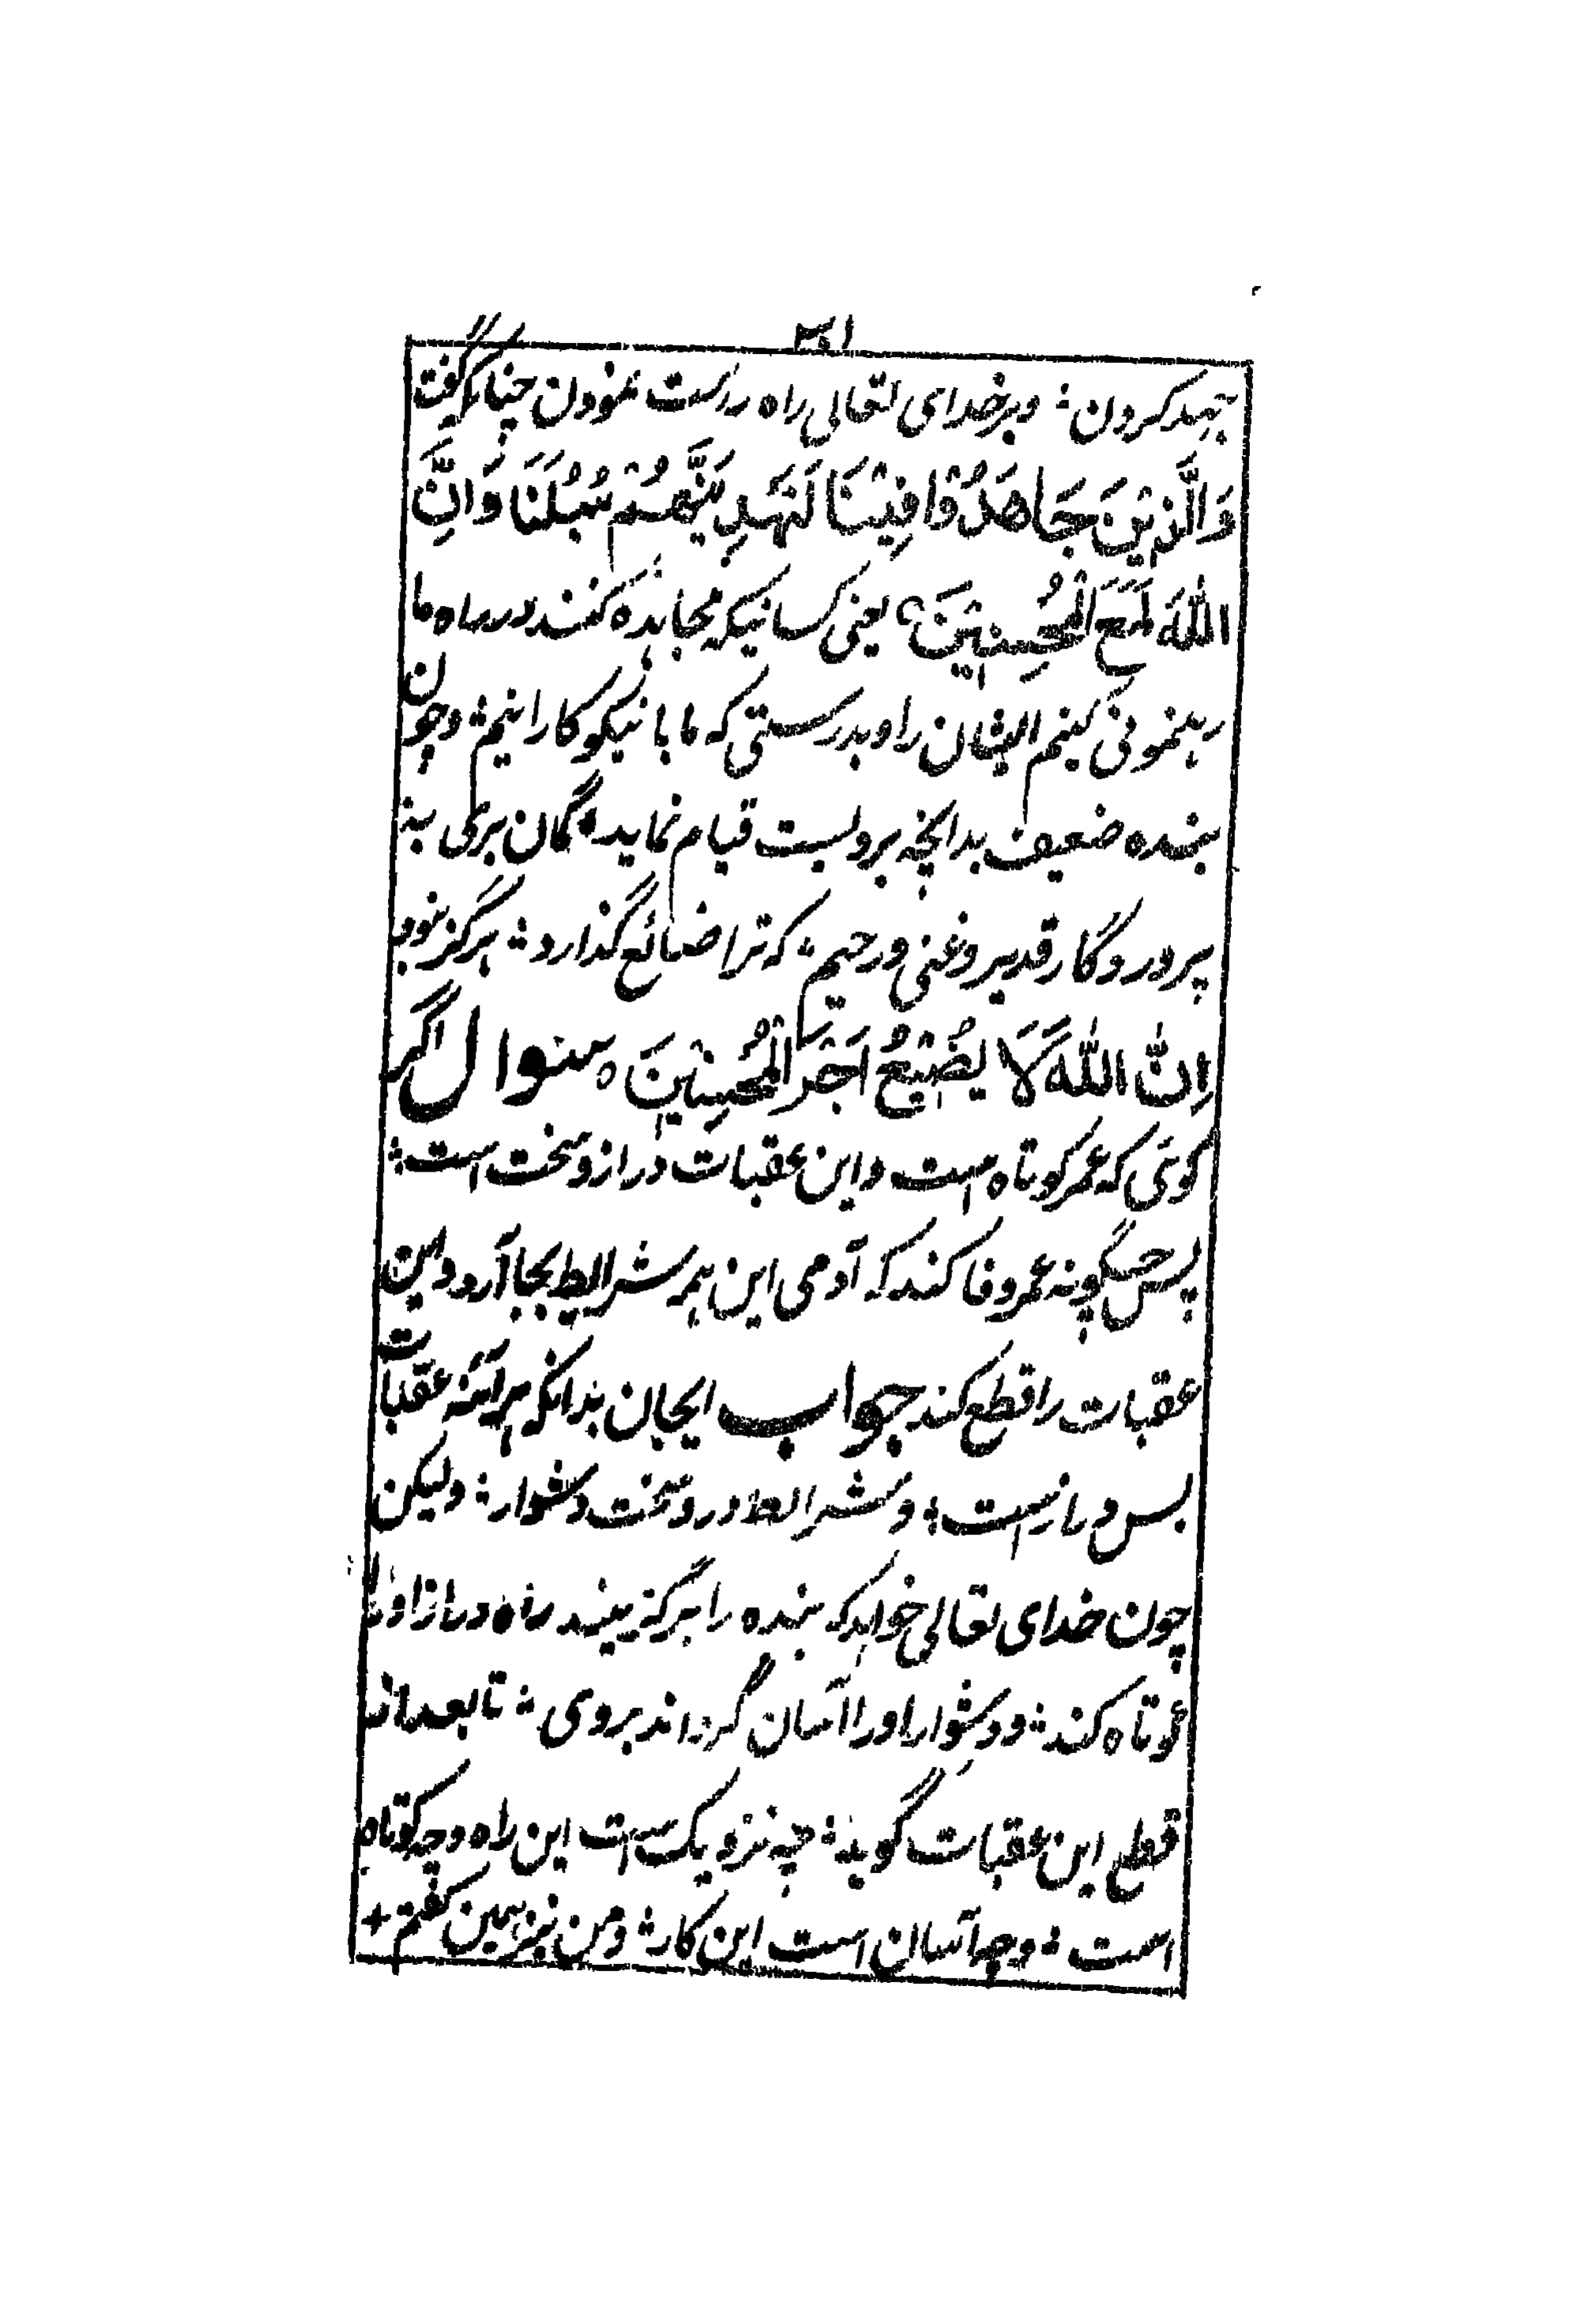 جهد کردن ؛ و بر خدای تعالی راه راست نمودن چنانکه گفت
وَالَّذِيْنَ جَاهَدُوْا فِيْنَا لَنَهْدِيَنَّهُمْ سُبُلَنَا وَاِنَّ
اللّٰهَ لَمَعَ الْمُحْسِنِيْنَ ؀ یعنی کسانیکه مجاهده کنند در راه ما
رهنمونی کنیم ایشان را و بدرستی که ما با نیکو کارانیم ؛ و چون
بنده ضعیف بدانچه بروست قیام نماید ؛ گمان بری به
پروردگار قدیر و غنی و رحیم ؛ که ترا ضائع گذارد ؛ هرگز نبود
اِنَّ اللّٰهَ لَا يُضِيْعُ اَجْرَ الْمُحْسِنِيْنَ ه سوال اگر
گوئی که عمر کوتاه است و این عقبات دراز و سخت است ؛
پس چگونه عمر وفا کند که آدمی این همه شرایط بجا آرد و این
عقبات را قطع کند جواب ایجان بدانکه هرآئنه عقبات
بس دراز است ؛ و شرائط در و سخت دشوار ؛ ولیکن
چون خدای تعالی خواهد که بنده را برگزیند راه دراز او را
کوتاه کند ؛ و دشوار او را آسان گرداند بروی ؛ تا بعد از
قطع این عقبات گوید ؛ چه نزدیک است این راه و چه کوتاه
است ؛ و چه آسان است این کار ؛ و من نیز همین گفتم +